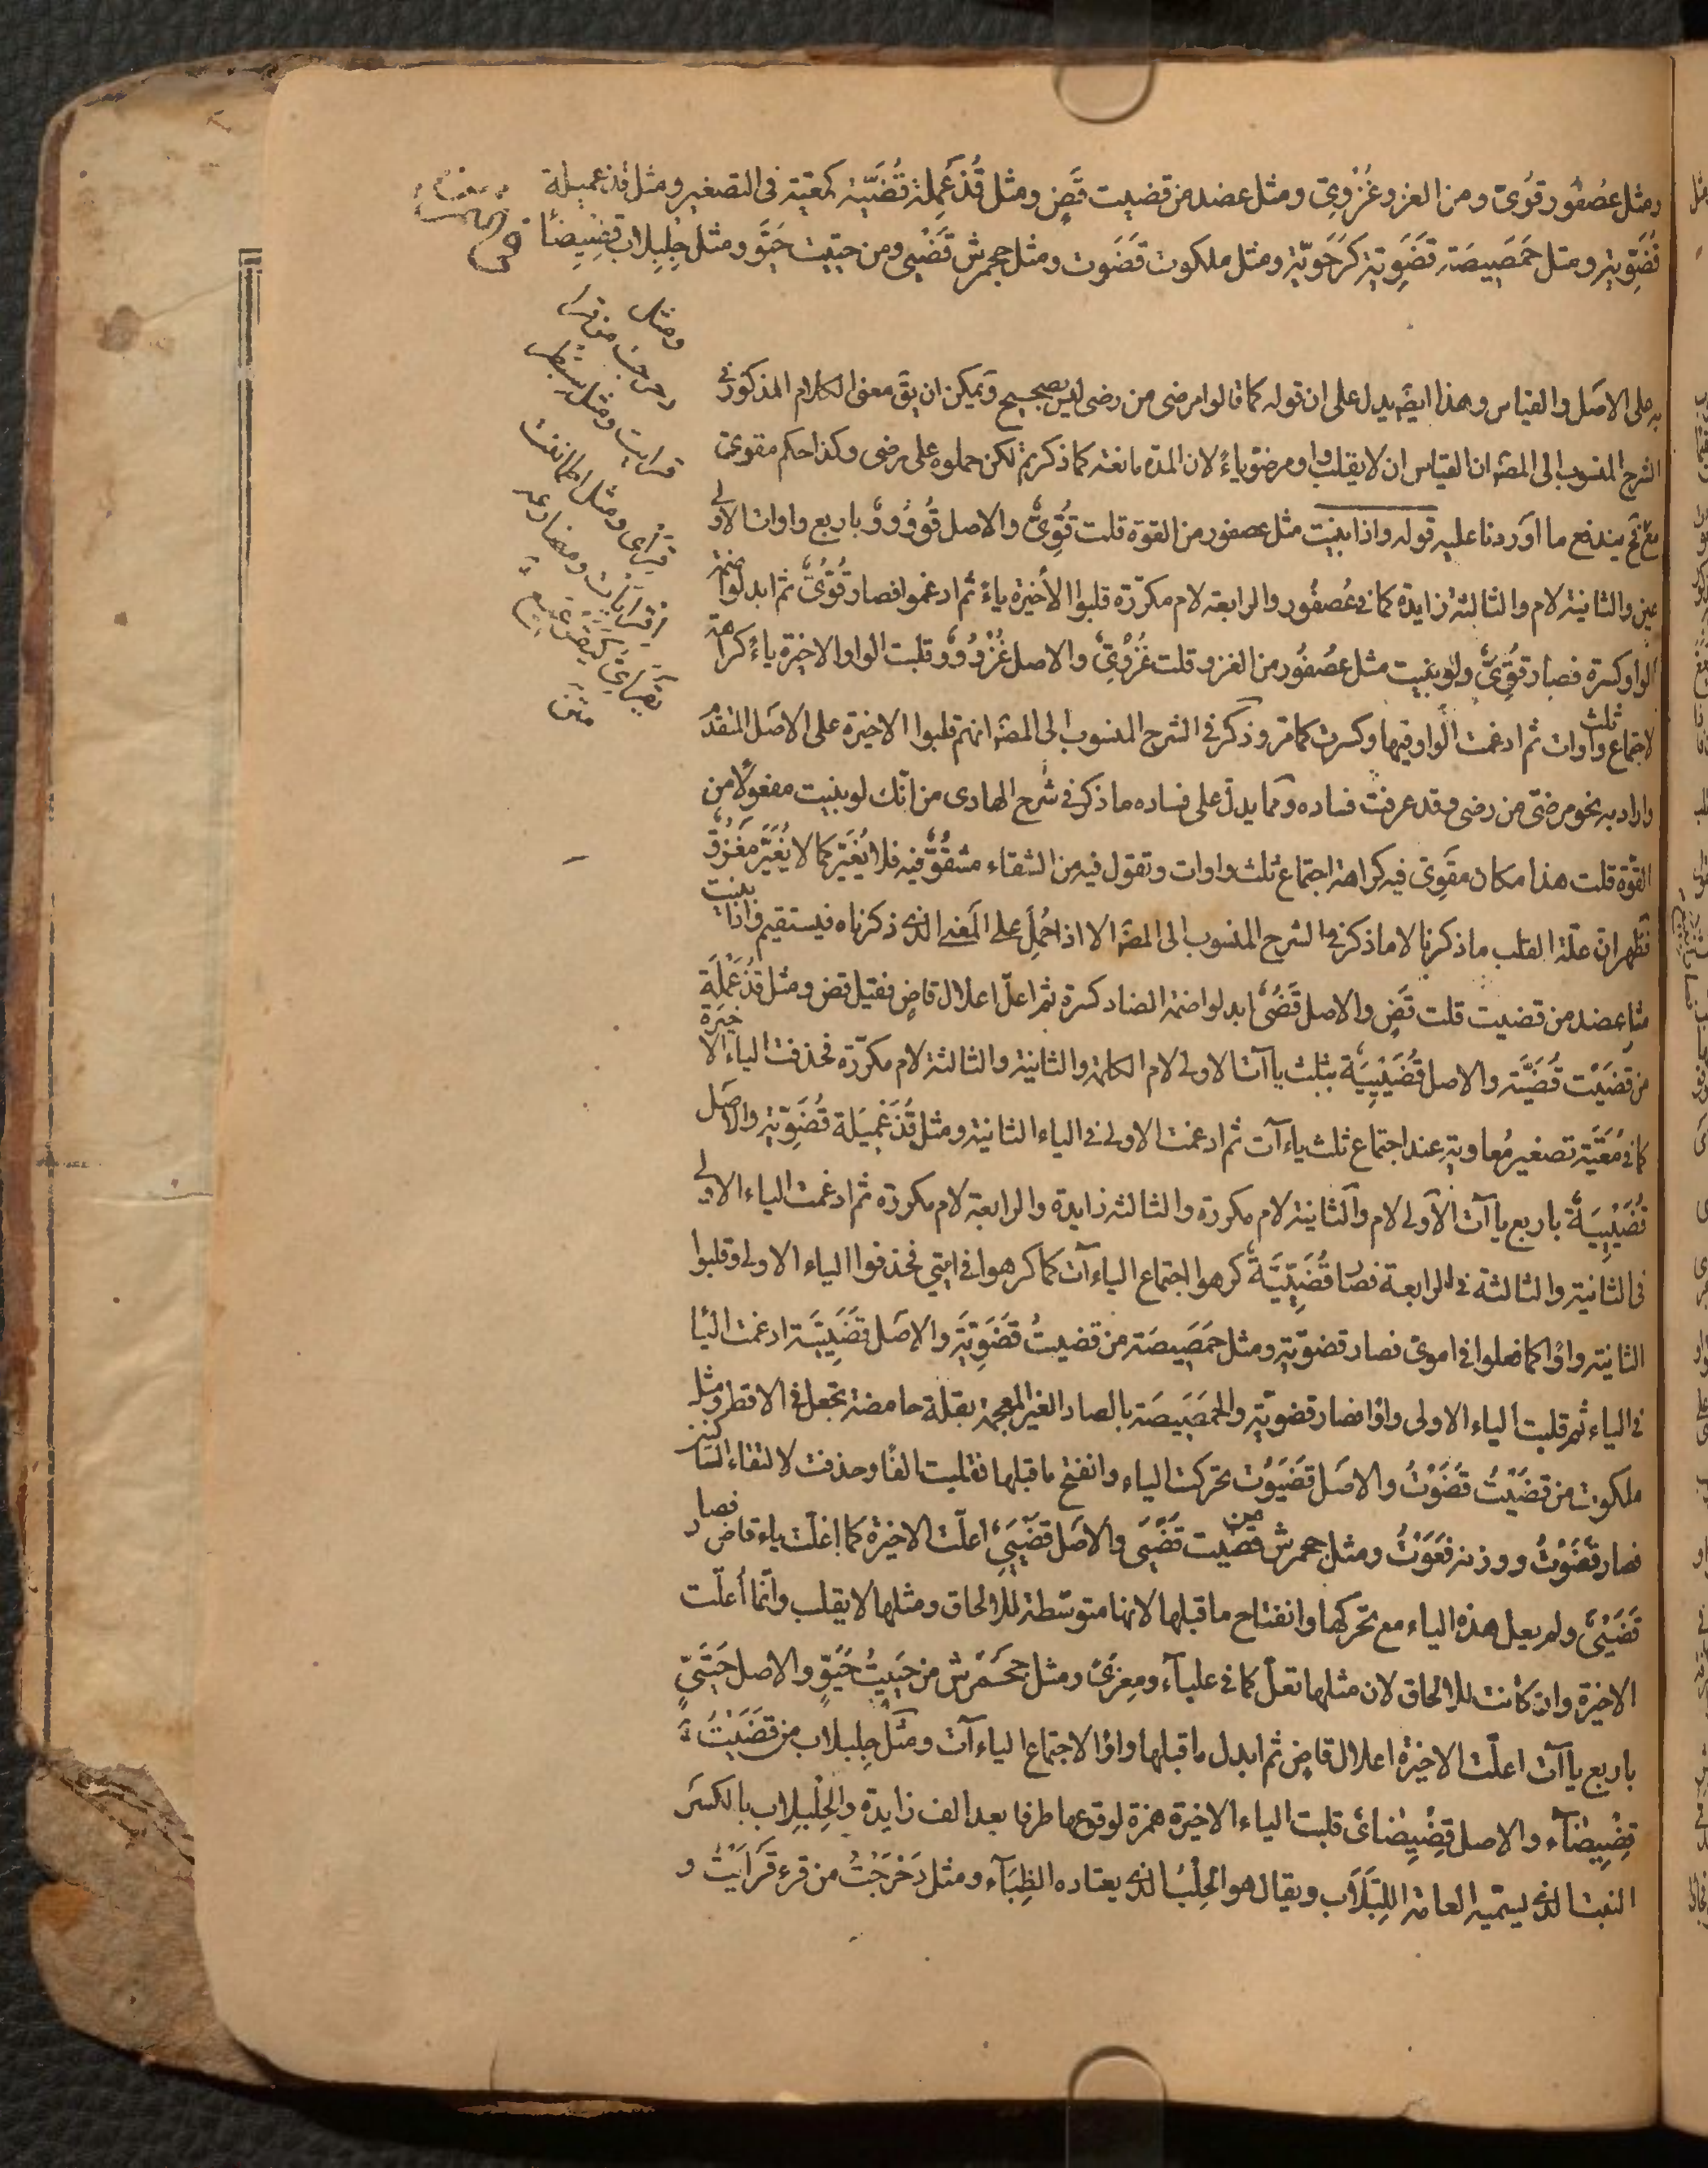 ومثل عصفور قوىّ ومن الغزو غُزْوىّ ومثل عضد من قضيت قَضٍ ومثل قُذَعْمِلة قُضَيّة كمعيّة فى التصغير ومثل قذعميلة
قُضَوِيّة ومثل حَمَصِيصَة قَضَوِيّة كَرَحَوِيّة ومثل ملكوت قَضَوت ومثل جحمرش قَضْيَىٍ ومن حييت حَيَّوٍ ومثل حِلِبْلاب قِضِيضاء
به على الاصل والقياس وهذا ايضا يدل على ان قوله كما قالوا مرضى من رضى ليس بصحيح ويمكن ان يق معنى الكلام المذكور فى
الشرح المنسوب الى المصَ ان القياس ان لا يقلب واو مرضوّ ياءً لان المدة مانعة كما ذكرتم لكن حملوه على مرضى وكذا حكم مقوىّ
مع يندفع ما اوردنا عليه قوله واذا بنيت مثل عصفور من القوة قلت قُوِّىٌّ والاصل قُوْوُووٌ باربع واوات الاولى
عين والثانية لام والثالثة زايدة كما فى عُصفُور والرابعة لام مكرّرة قلبوا الأخيرة ياءً ثم ادغموا فصار قُوُّىٌّ ثم ابدلوا ضمة
الواو كسرة فصار قُوِّىٌّ ولو بنيت مثل عصُفُور من الغزو قلت غُزْوِىٌّ والاصل غُزْوُووٌ وقلبت الواو الاخيرة ياءً كراهة
لاجتماع ثلث واوات ثم ادغمت الواو فيها وكسرت كما مرّ وذكر فى الشرح المنسوب الى المصَ انهم قلبوا الاخيرة على الاصل المتقدّم
واراد به نحو مرضىّ من رضى وقد عرفت فساده ومما يدلّ على فساده ما ذكر فى شرح الهادى من انّك لو بنيت مفعولاً من
القوّة قلت هذا مكان مقوىّ فيه كراهة اجتماع ثلث واوات وتقول فيه من الشقاء مشقُوٌّ فيه فلا يُغَيَّر كما لا يُغَيَّر مَغْزُوٌّ
فظهر انّ علّة القلب ما ذكرنا لا ما ذكر فى الشرح المنسوب الى المصَ الا اذا حُمِلَ على المعنى الذى ذكرناه فيستقيم واذا بنيت
مثل عضد من قضيت قلت قَضٍ والاصل قَضُىٌ ابدلوا ضمة الضاد كسرة ثم اعلّ اعلال قاضٍ فقيل قض ومثل قُذَعْمِلَةٍ
من قضَيْت قُضَيَّة والاصل قُضَيْيِيَة بثلث ياآت الاولى لام الكلمة والثانية والثالثة لام مكرّرة فحذفت الياء الاخيرة
كما فى مُعَيَّة تصغير مُعاوية عند اجتماع ثلث ياءآت ثم ادغمت الاولى فى الياء الثانية ومثل قُذَعْمِيلَة قُضَوِيّة والاصل
قُضَيْيِيَةٌ باربع ياآت الاولى لام والثانية لام مكررة والثالثة زايدة والرابعة لام مكررة ثم ادغمت الياء الاولى
فى الثانية والثالثة فى الرابعة فصار قُضَيِّيَّةٌ كرهوا اجتماع الياءآت كما كرهوا فى اميّى فحذفوا الياء الاولى وقلبوا
الثانية واوًا كما فعلوا فى اموىّ فصار قضويّة ومثل حمَصَيصَة من قضيتُ قَضَوِيَّة والاصل قضَيِيَّة ادغمت اليا
فى الياء ثم قلبت الياء الاولى واوًا فصار قضويّة والحَمَصِيصَة بالصاد الغير المعجمة بقلة حامضة تجعل فى الاقط ومثل
ملكوت من قضَيْتُ قَضَوْتُ والاصل قَضَيَوُت تحركت الياء وانفتح ما قبلها فقلبت الفًا وحذفت لالتقاء الساكنين
فصار قَضَوْتُ ووزنه فعَوْتُ ومثل جحمرش من قضيت قَضْيَىٍ والاصل قَضْيَيِىٌ اعلّت الاخيرة كما اعلّت ياء قاض فصار
قَضْيَىٍ ولم يعل هذه الياء مع تحرّكها وانفتاح ما قبلها لانها متوسّطة للالحاق ومثلها لا يقلب وانّما أُعلّت
الاخيرة وان كانت للالحاق لان مثلها تعلّ كما فى علباء ومِعزىً ومثل جَحْمَرش من حَيِيتُ حَيَّوٍ والاصل حَيَّيِىٌ
باربع ياآت اعلّت الاخيرة اعلال قاضٍ ثم ابدل ما قبلها واوًا لاجتماع الياءآت ومثل حِلِبلاب من قضَيْتُ
قِضِيضآء والاصل قِضِيضاىٌ قلبت الياء الاخيرة همزة لوقوعها طرفا بعد الف زايدة والحِلِبْلاب بالكسر
النبت الذى يسمّيه العامة اللَبْلاب ويقال هو الحُلَّب الذى يعتاده الظِبَآء ومثل دَحْرَجْتُ من قرء قَرَأَيْتُ و
ومثل
دحرجت من قرأ
قرأيت ومثل سبطر
قرأى ومثل اطماننت
اقرأيات ومضارعه
يقرأيى كيقرعيع
متن